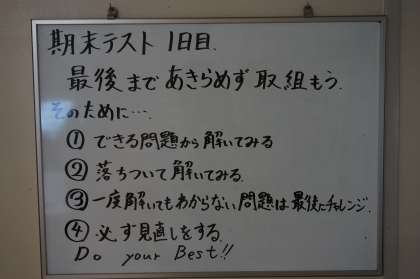 期末テスト 1日目.
最後まであきらめず取組もう.
そのために…
① できる問題から解いてみる
② 落ちついて解いてみる.
③ 一度解いてもわからない問題は最後にチャレンジ.
④ 必ず見直しをする.
Do your Best!!